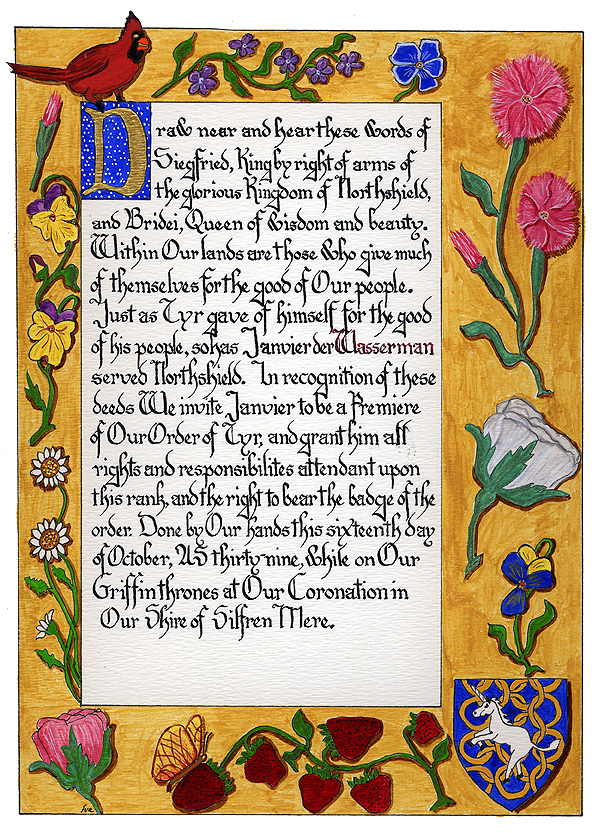 Draw near and hear these words of
Siegfried, King by right of arms of
the glorious Kingdom of Northshield,
and Bridei, Queen of wisdom and beauty.
Within Our lands are those who give much
of themselves for the good of Our people.
Just as Tyr gave of himself for the good
of his people, so has Janvier der Wasserman
served Northshield. In recognition of these
deeds We invite Janvier to be a Premiere
of Our Order of Tyr, and grant him all
rights and responsibilites attendant upon
this rank, and the right to bear the badge of the
order. Done by Our hands this sixteenth day
of October, AS thirty-nine, while on Our
Griffin thrones at Our Coronation in
Our Shire of Silfren Mere.